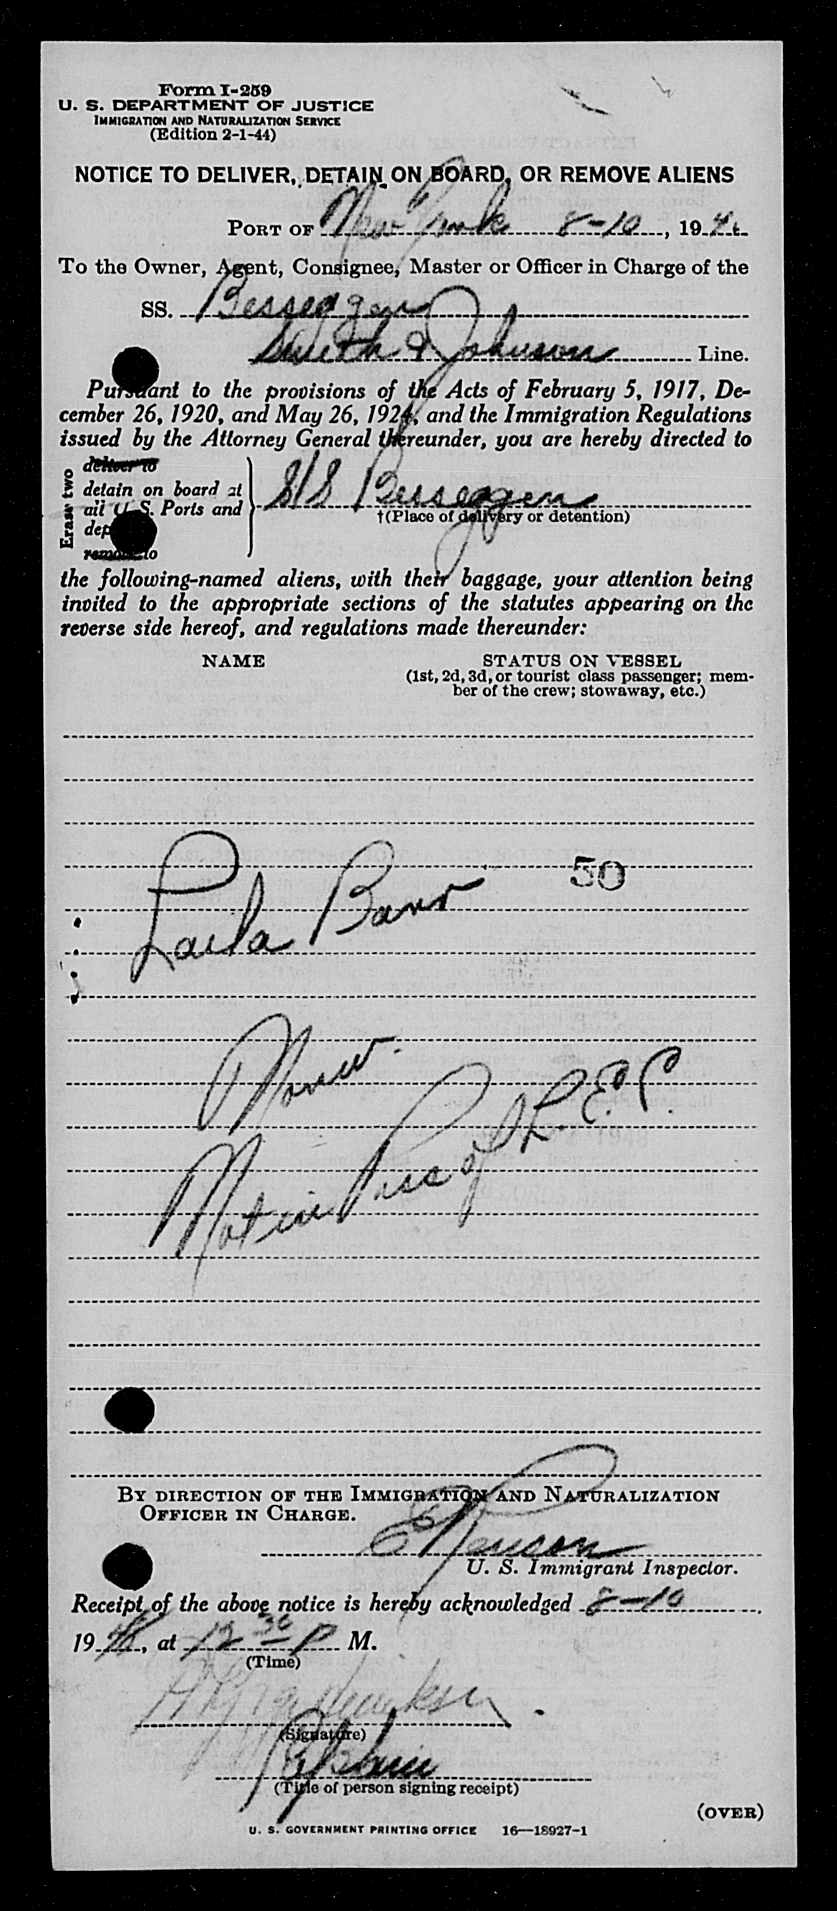 Form I-259
U. S. DEPARTMENT OF JUSTICE
IMMIGRATION AND NATURALIZATION SERVICE
(Edition 2-1-44)
NOTICE TO DELIVER, DETAIN ON BOARD, OR REMOVE ALIENS
PORT OF New York 8-10, 194
To the Owner, Agent, Consignee, Master or Officer in Charge of the
SS. Besseggen
Smith & Johnson Line.
Pursuant to the provisions of the Acts of February 5, 1917, De-
cember 26, 1920, and May 26, 1924, and the Immigration Regulations
issued by the Attorney General thereunder, you are hereby directed to
Erase two
deliver to
detain on board at
all U. S. Ports and
remove to
S/S Besseggen
†(Place of delivery or detention)
the following-named aliens, with their baggage, your attention being
invited to the appropriate sections of the statutes appearing on the
reverse side hereof, and regulations made thereunder:
NAME STATUS ON VESSEL
(1st, 2d, 3d, or tourist class passenger; mem-
ber of the crew; stowaway, etc.)
50
Laila Barr
of L.E.P.
BY DIRECTION OF THE IMMIGRATION AND NATURALIZATION
OFFICER IN CHARGE.
U. S. Immigrant Inspector.
Receipt of the above notice is hereby acknowledged 8-10,
19, at 12 30 P M.
(Time)
(Signature)
(Title of person signing receipt)
(OVER)
U. S. GOVERNMENT PRINTING OFFICE 16—18927-1